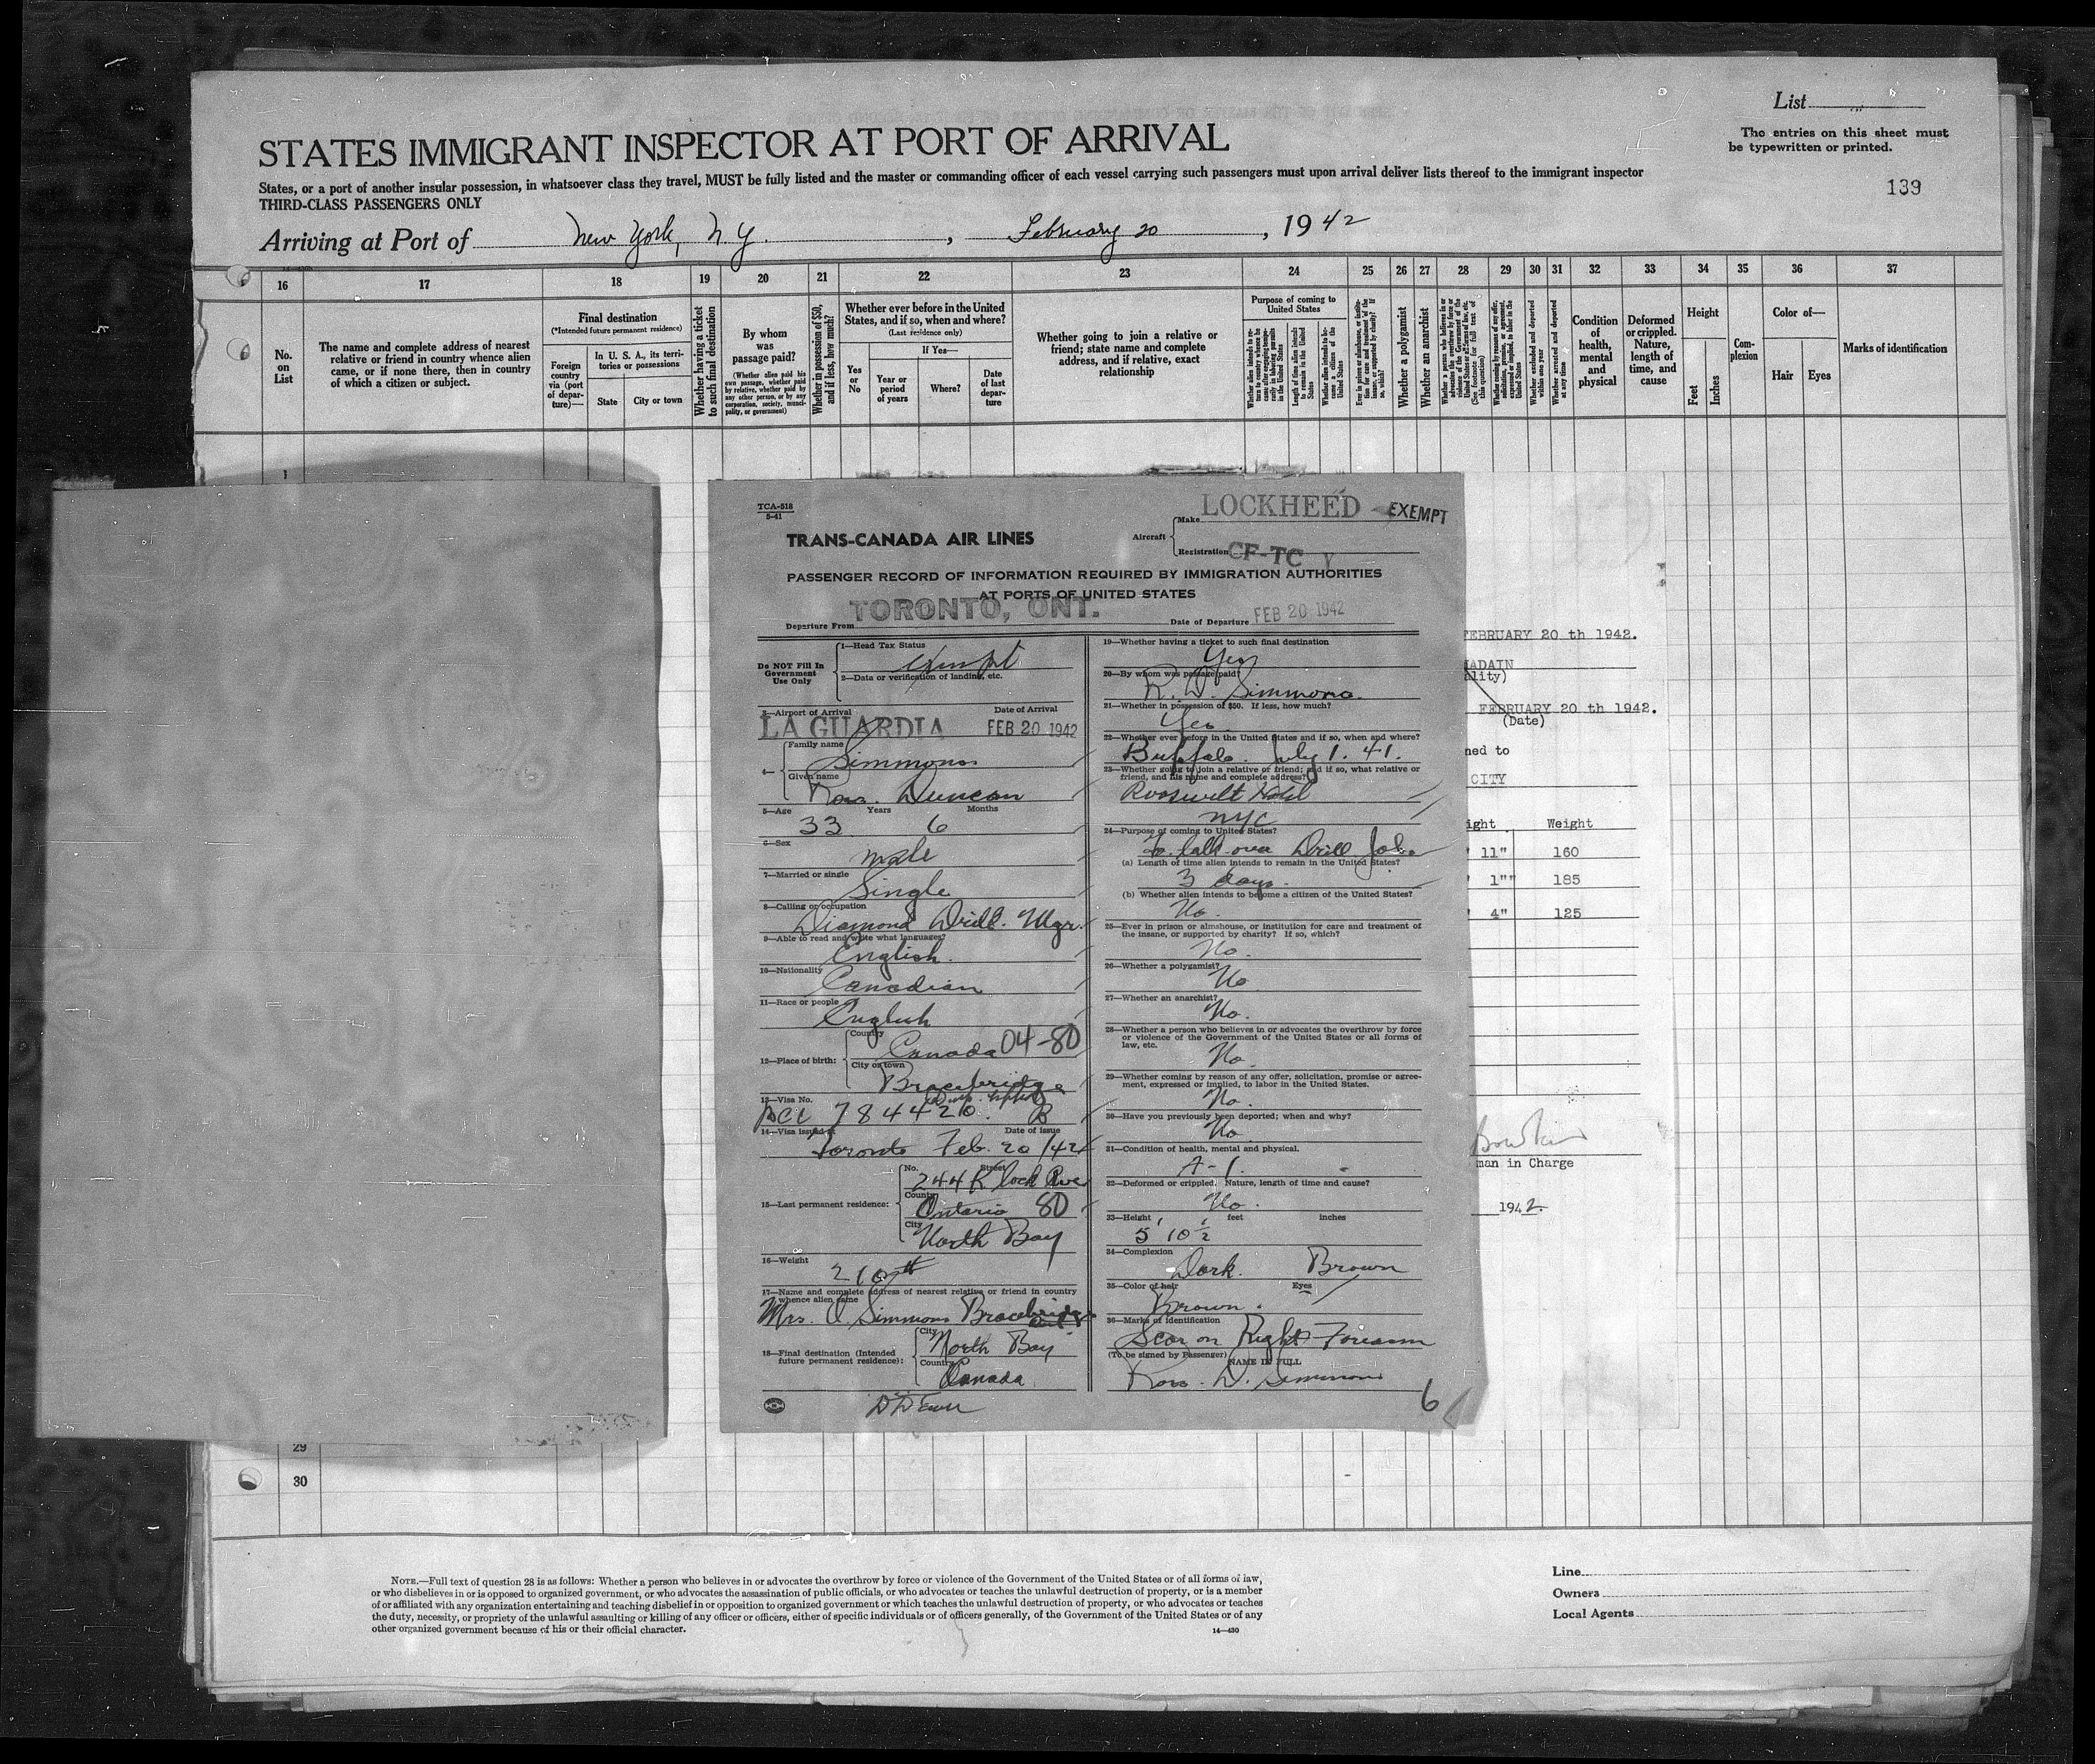 List
The entries on this sheet must
be typewritten or printed.
STATES IMMIGRANT INSPECTOR AT PORT OF ARRIVAL
States, or a port of another insular possession, in whatsoever class they travel, MUST be fully listed and the master or commanding officer of each vessel carrying such passengers must upon arrival deliver lists thereof to the immigrant inspector
THIRD-CLASS PASSENGERS ONLY
139
Arriving at Port of New York, N.Y., February 20, 1942
16 17 18 19 20 21 22 23 24 25 26 27 28 29 30 31 32 33 34 35 36 37
No.
on
List
The name and complete address of nearest
relative or friend in country whence alien
came, or if none there, then in country
of which a citizen or subject.
Final destination
(*Intended future permanent residence)
Foreign
country
via (port
of depar-
ture)—
In U. S. A., its terri-
tories or possessions
State
City or town
Whether having a ticket
to such final destination
By whom
was
passage paid?
(Whether alien paid his
own passage, whether paid
by relative, whether paid by
any other person, or by any
corporation, society, munici-
pality, or government)
Whether in possession of $50,
and if less, how much?
Whether ever before in the United
States, and if so, when and where?
(Last residence only)
Yes
or
No
If Yes—
Year or
period
of years
Where?
Date
of last
depar-
ture
Whether going to join a relative or
friend; state name and complete
address, and if relative, exact
relationship
Purpose of coming to
United States
Length of time alien intends
to remain in the United
States
Whether a polygamist
Whether an anarchist
Whether arrested and deported
at any time
Condition
of
health,
mental
and
physical
Deformed
or crippled.
Nature,
length of
time, and
cause
Height
Feet
Inches
Com-
plexion
Color of—
Hair
Eyes
Marks of identification
1
TCA-518
5-41
TRANS-CANADA AIR LINES
Aircraft
Make LOCKHEED EXEMPT
Registration CF-TC Y
PASSENGER RECORD OF INFORMATION REQUIRED BY IMMIGRATION AUTHORITIES
AT PORTS OF UNITED STATES
Departure From TORONTO, ONT.
Date of Departure FEB 20 1942
Do NOT Fill In
Government
Use Only
1—Head Tax Status
exempt
2—Data or verification of landing, etc.
3—Airport of Arrival Date of Arrival
LA GUARDIA FEB 20 1942
4—
Family name
Simmons
Given name
Ross. Duncan
5—Age Years Months
33 6
6—Sex
male
7—Married or single
Single
8—Calling or occupation
Diamond Drill. Mgr.
9—Able to read and write what languages?
English.
10—Nationality
Canadian
11—Race or people
English
12—Place of birth:
Country
Canada 04-80
City or town
Bracebridge
13—Visa No.
784426 B
14—Visa issued at Date of issue
Toronto Feb. 20/42
15—Last permanent residence:
No. Street
244 Klock Ave
Country
Ontario 80
City
North Bay
16—Weight
210 #
17—Name and complete address of nearest relative or friend in country
whence alien came
Mrs. O. Simmons Bracebridge
18—Final destination (Intended
future permanent residence):
City
North Bay
Country
Canada
19—Whether having a ticket to such final destination
Yes
20—By whom was passage paid?
R. D. Simmons.
21—Whether in possession of $50. If less, how much?
Yes
22—Whether ever before in the United States and if so, when and where?
Buffalo. July 1. 41.
23—Whether going to join a relative or friend; and if so, what relative or
friend, and his name and complete address?
Roosevelt Hotel
NYC
24—Purpose of coming to United States?
To talk over Drill Job.
(a) Length of time alien intends to remain in the United States?
3 days.
(b) Whether alien intends to become a citizen of the United States?
No.
25—Ever in prison or almshouse, or institution for care and treatment of
the insane, or supported by charity? If so, which?
No.
26—Whether a polygamist?
No
27—Whether an anarchist?
No.
28—Whether a person who believes in or advocates the overthrow by force
or violence of the Government of the United States or all forms of
law, etc.
No
29—Whether coming by reason of any offer, solicitation, promise or agree-
ment, expressed or implied, to labor in the United States.
No.
30—Have you previously been deported; when and why?
No
31—Condition of health, mental and physical.
A-1.
32—Deformed or crippled. Nature, length of time and cause?
No.
33—Height feet inches
5' 10 1/2
34—Complexion
Dark. Brown
35—Color of hair Eyes
Brown.
36—Marks of identification
Scar on Right Forearm
(To be signed by Passenger) NAME IN FULL
Ross. D. Simmons
6
FEBRUARY 20 th 1942.
ADAIN
ality)
FEBRUARY 20 th 1942.
(Date)
ned to
CITY
ight Weight
11" 160
1"" 185
4" 125
man in Charge
1942.
29
30
NOTE.—Full text of question 28 is as follows: Whether a person who believes in or advocates the overthrow by force or violence of the Government of the United States or of all forms of law,
or who disbelieves in or is opposed to organized government, or who advocates the assassination of public officials, or who advocates or teaches the unlawful destruction of property, or is a member
of or affiliated with any organization entertaining and teaching disbelief in or opposition to organized government or which teaches the unlawful destruction of property, or who advocates or teaches
the duty, necessity, or propriety of the unlawful assaulting or killing of any officer or officers, either of specific individuals or of officers generally, of the Government of the United States or of any
other organized government because of his or their official character.
14—430
Line
Owners
Local Agents